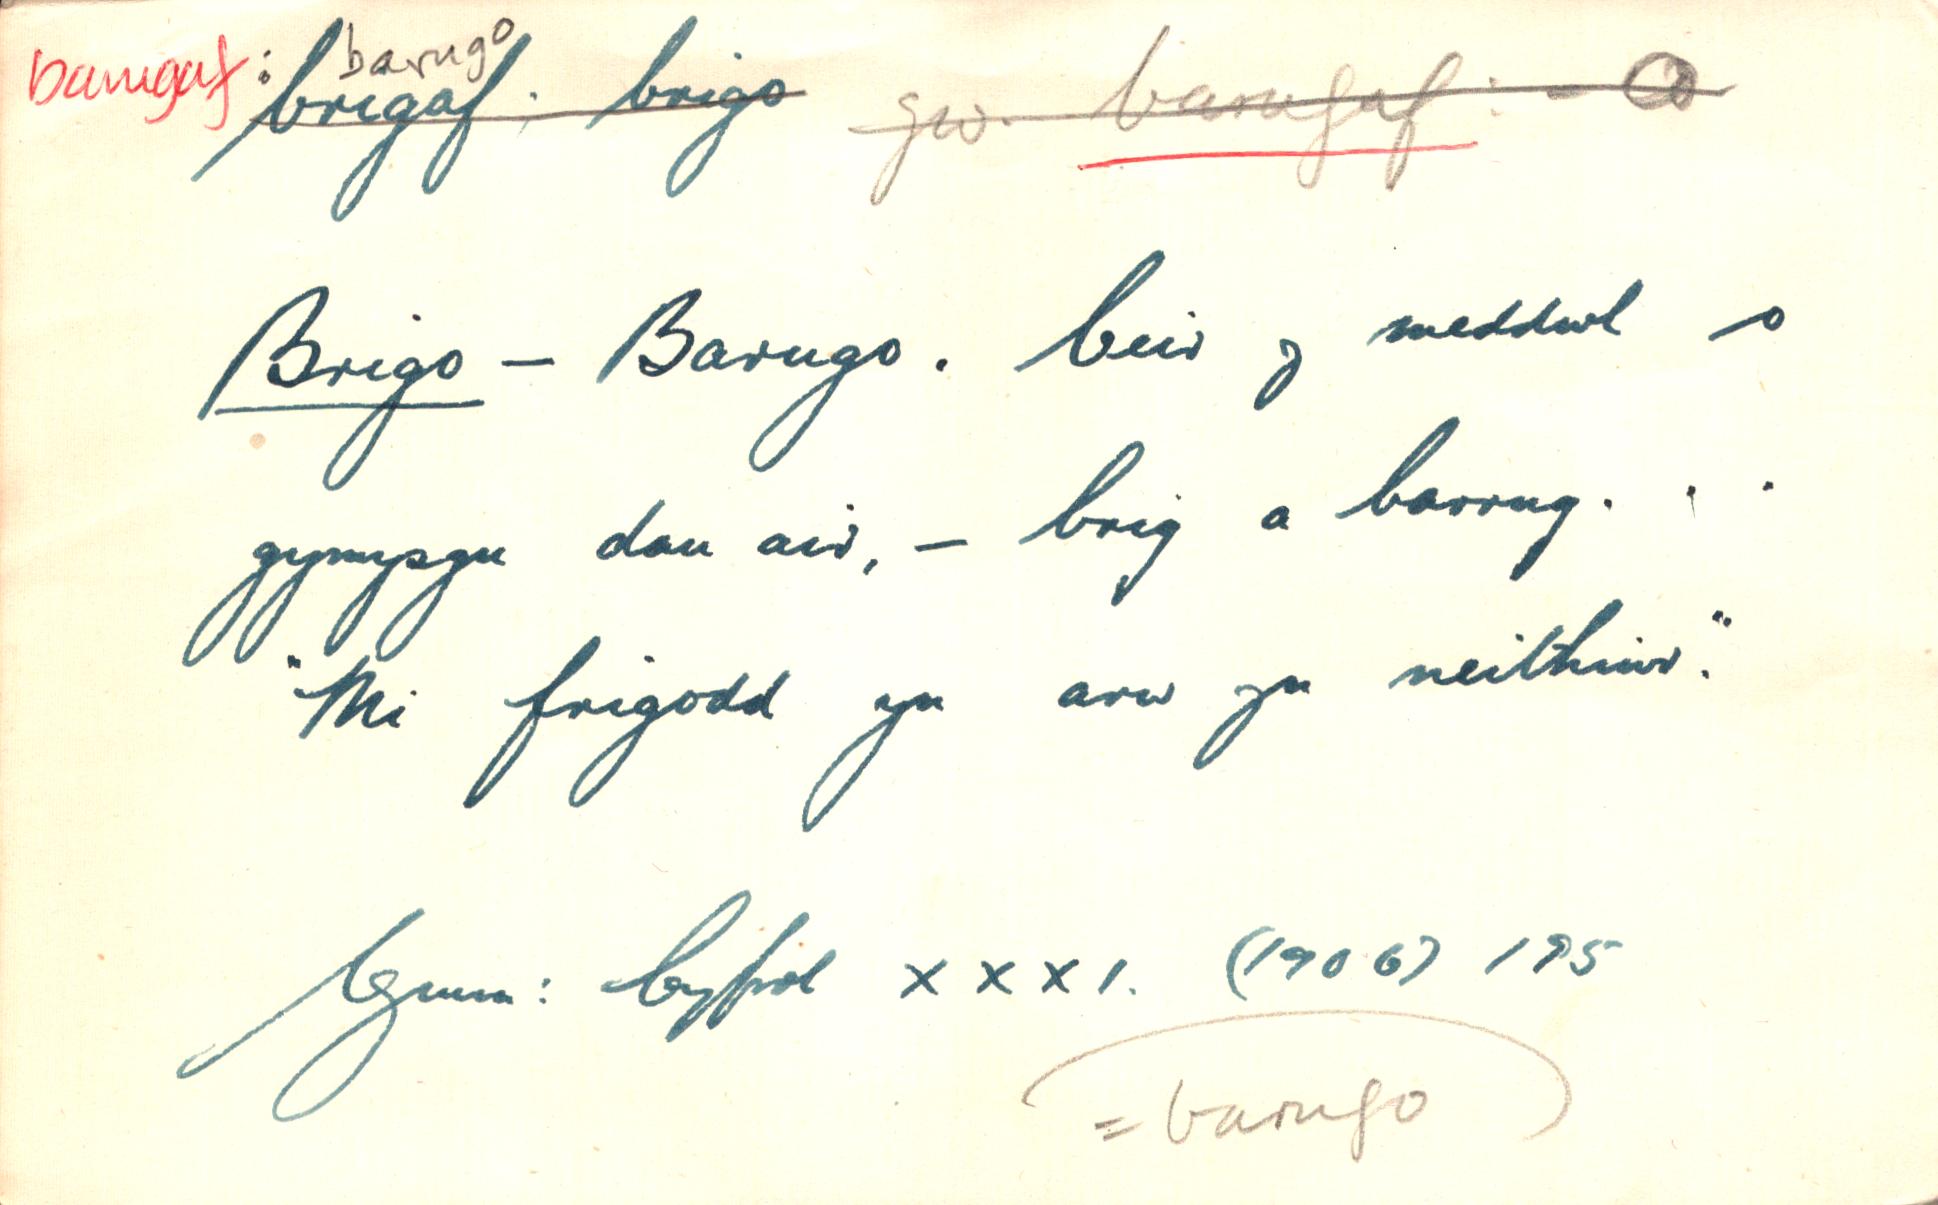 barugaf: barugo
brigaf: brigo gw. barugaf: -o
Brigo – Barugo. Ceir y meddwl o
gymysgu dau air, – brig a barrug. . .
"Mi frigodd yn arw yn neithiwr."
Cymru: Cyfrol XXXI. (1906) 195
= barugo